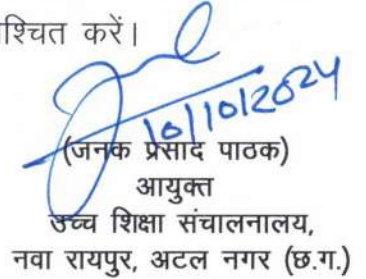 श्चित करें।
10/10/2024
(जनक प्रसाद पाठक)
आयुक्त
उच्च शिक्षा संचालनालय,
नवा रायपुर, अटल नगर (छ.ग.)